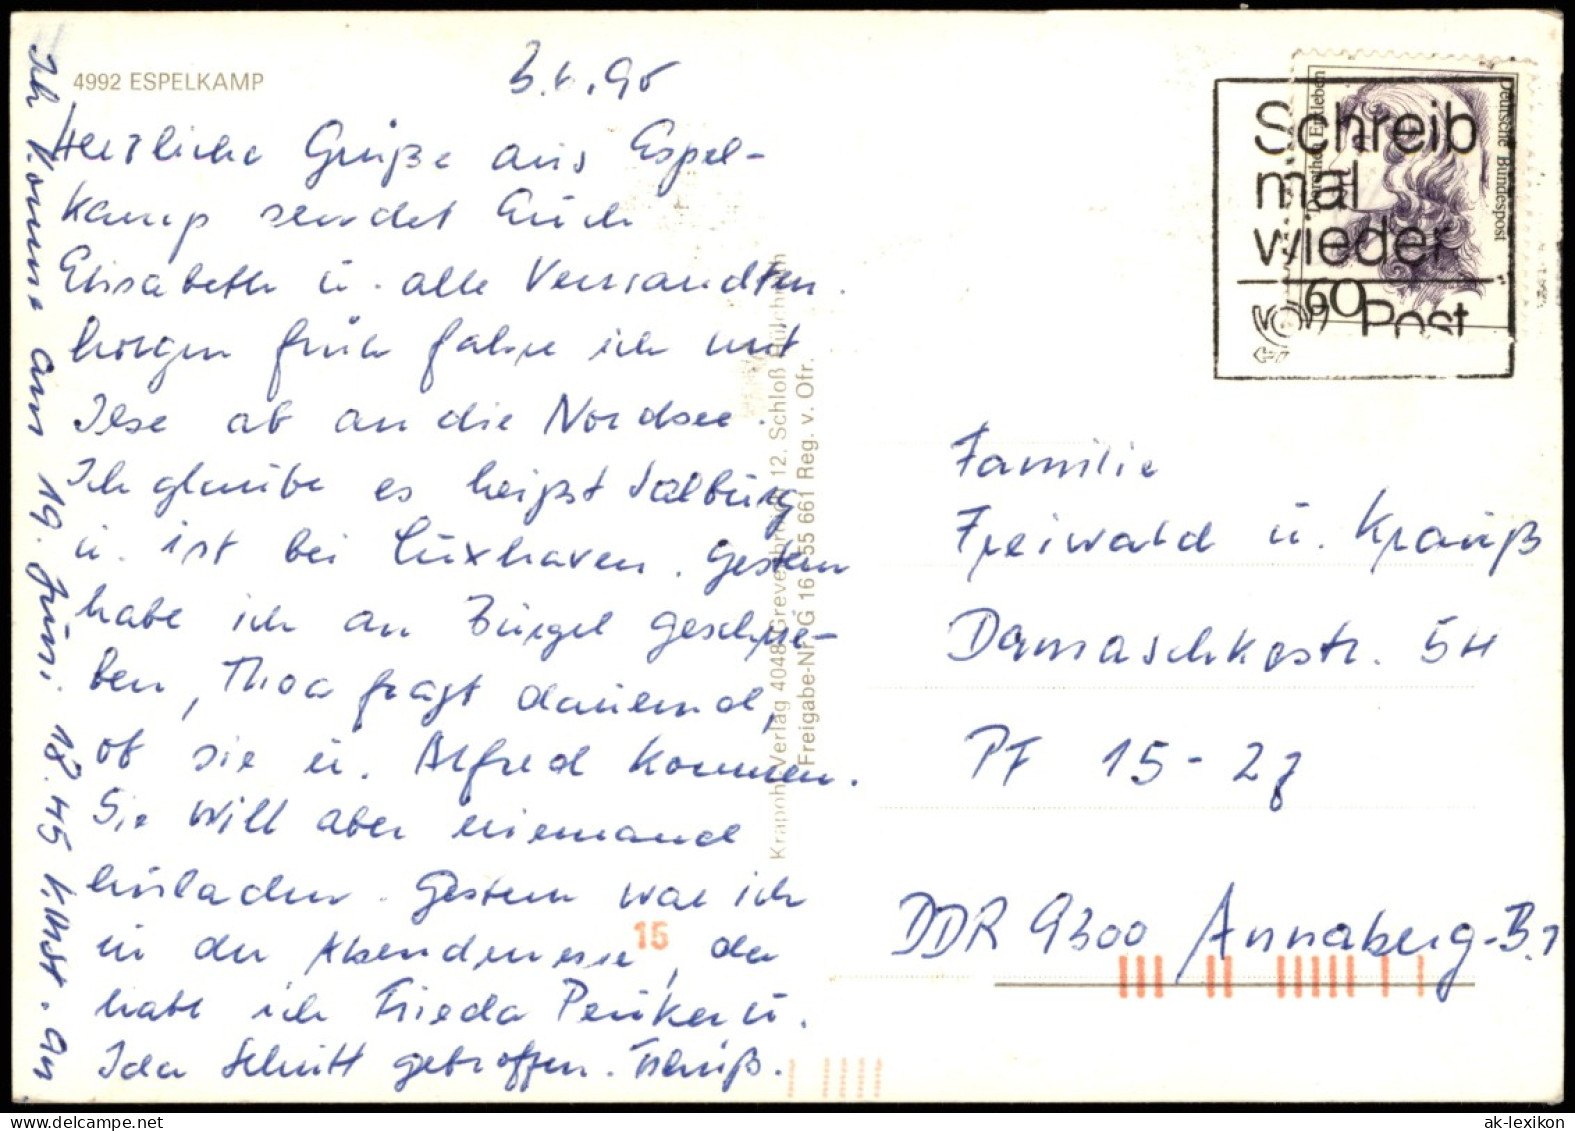 4992 ESPELKAMP
3.6.90
Herzliche Grüße aus Espel-
kamp sendet Euch
Elisabeth u. alle Verwandten.
Morgen früh fahre ich mit
Ilse ab an die Nordsee.
Ich glaube es heißt
u. ist bei Cuxhaven. Gestern
habe ich an Bürgel geschrie-
ben, Thea fragt dauernd,
ob sie u. Alfred kommen.
Sie will aber niemand
einladen. Gestern war ich
in der Abendmesse, da
habe ich Frieda Penker u.
Ida Schmitt getroffen. Tschüß.
Ich komme am 19. Juni 18.45 K.M.St. an
Krapohl-Verlag 4048 Grevenbroich 12, Schloß Hülchrath
Freigabe-Nr. OG 16 55 661 Reg. v. Ofr.
15
Schreib
mal
wieder
Post
Deutsche Bundespost
Dorothea Erxleben
60
Familie
Freiwald u. Krauß
Damaschkestr. 54
PF 15-27
DDR 9300 Annaberg-B.1
ak-lexikon